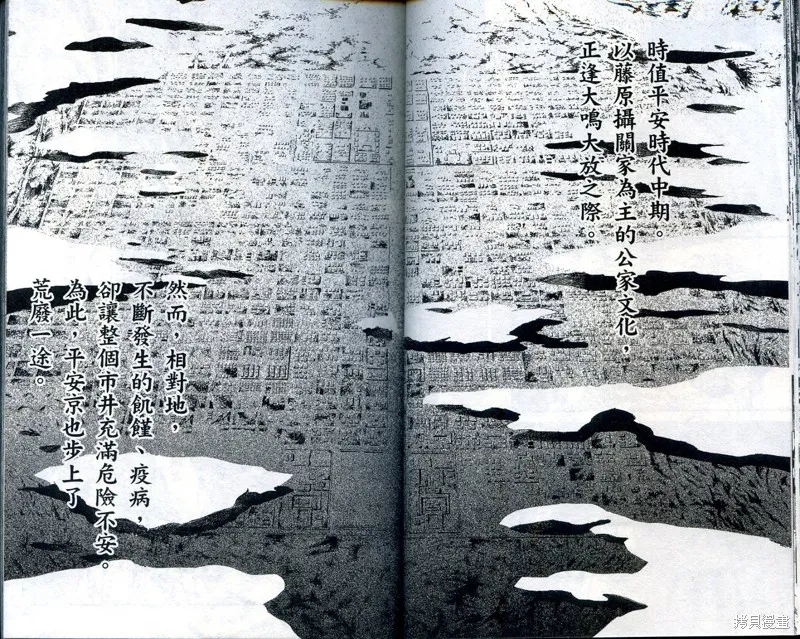 時值平安時代中期。
以藤原攝關家為主的公家文化，
正逢大鳴大放之際。
然而，相對地，
不斷發生的飢饉、疫病，
卻讓整個市井充滿危險不安。
為此，平安京也步上了
荒廢一途。
拷貝漫畫